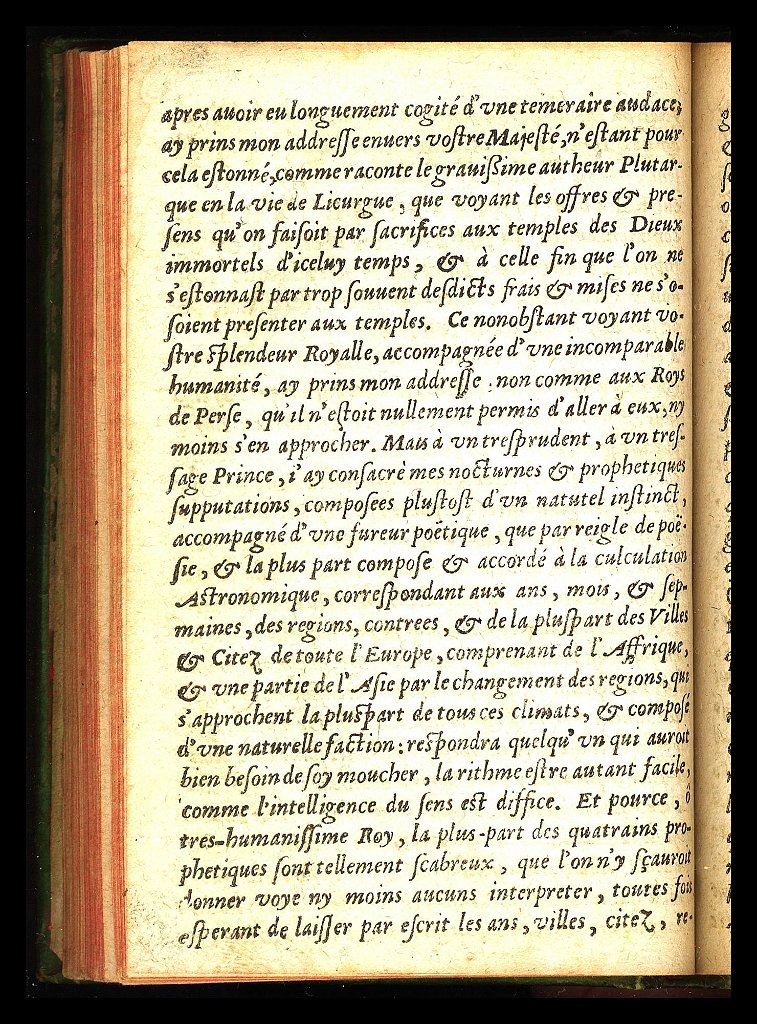 apres auoir eu longuement cogité d'vne temeraire audace,
ay prins mon addreſſe enuers voſtre Majeſté, n'eſtant pour
cela eſtonné, comme raconte le grauißime autheur Plutar-
que en la vie de Licurgue, que voyant les offres & pre-
ſens qu'on faiſoit par ſacrifices aux temples des Dieux
immortels d'iceluy temps, & à celle fin que l'on ne
s'eſtonnaſt par trop ſouuent deſdicts frais & miſes ne s'o-
ſoient preſenter aux temples. Ce nonobſtant voyant vo-
ſtre ſplendeur Royalle, accompagnée d'vne incomparable
humanité, ay prins mon addreſſe, non comme aux Roys
de Perſe, qu'il n'eſtoit nullement permis d'aller à eux, ny
moins s'en approcher. Mais à vn treſprudent, à vn treſ-
ſage Prince, i'ay conſacrè mes nocturnes & prophetiques
ſupputations, compoſees pluſtoſt d'vn natutel inſtinct,
accompagné d'vne fureur poëtique, que par reigle de poë-
ſie, & la plus part compoſe & accordé à la culculation
Aſtronomique, correſpondant aux ans, mois, & ſep-
maines, des regions, contrees, & de la pluſpart des Villes
& Citez de toute l'Europe, comprenant de l'Affrique,
& vne partie de l'Aſie par le changement des regions, qui
s'approchent la pluſpart de tous ces climats, & compoſé
d'vne naturelle faction: reſpondra quelqu'vn qui auroit
bien beſoin de ſoy moucher, la rithme eſtre autant facile,
comme l'intelligence du ſens eſt diffice. Et pource, ô
tres-humaniſſime Roy, la plus-part des quatrains pro-
phetiques ſont tellement ſcabreux, que l'on n'y ſçauroit
donner voye ny moins aucuns interpreter, toutes fois
eſperant de laiſſer par eſcrit les ans, villes, citez, re-